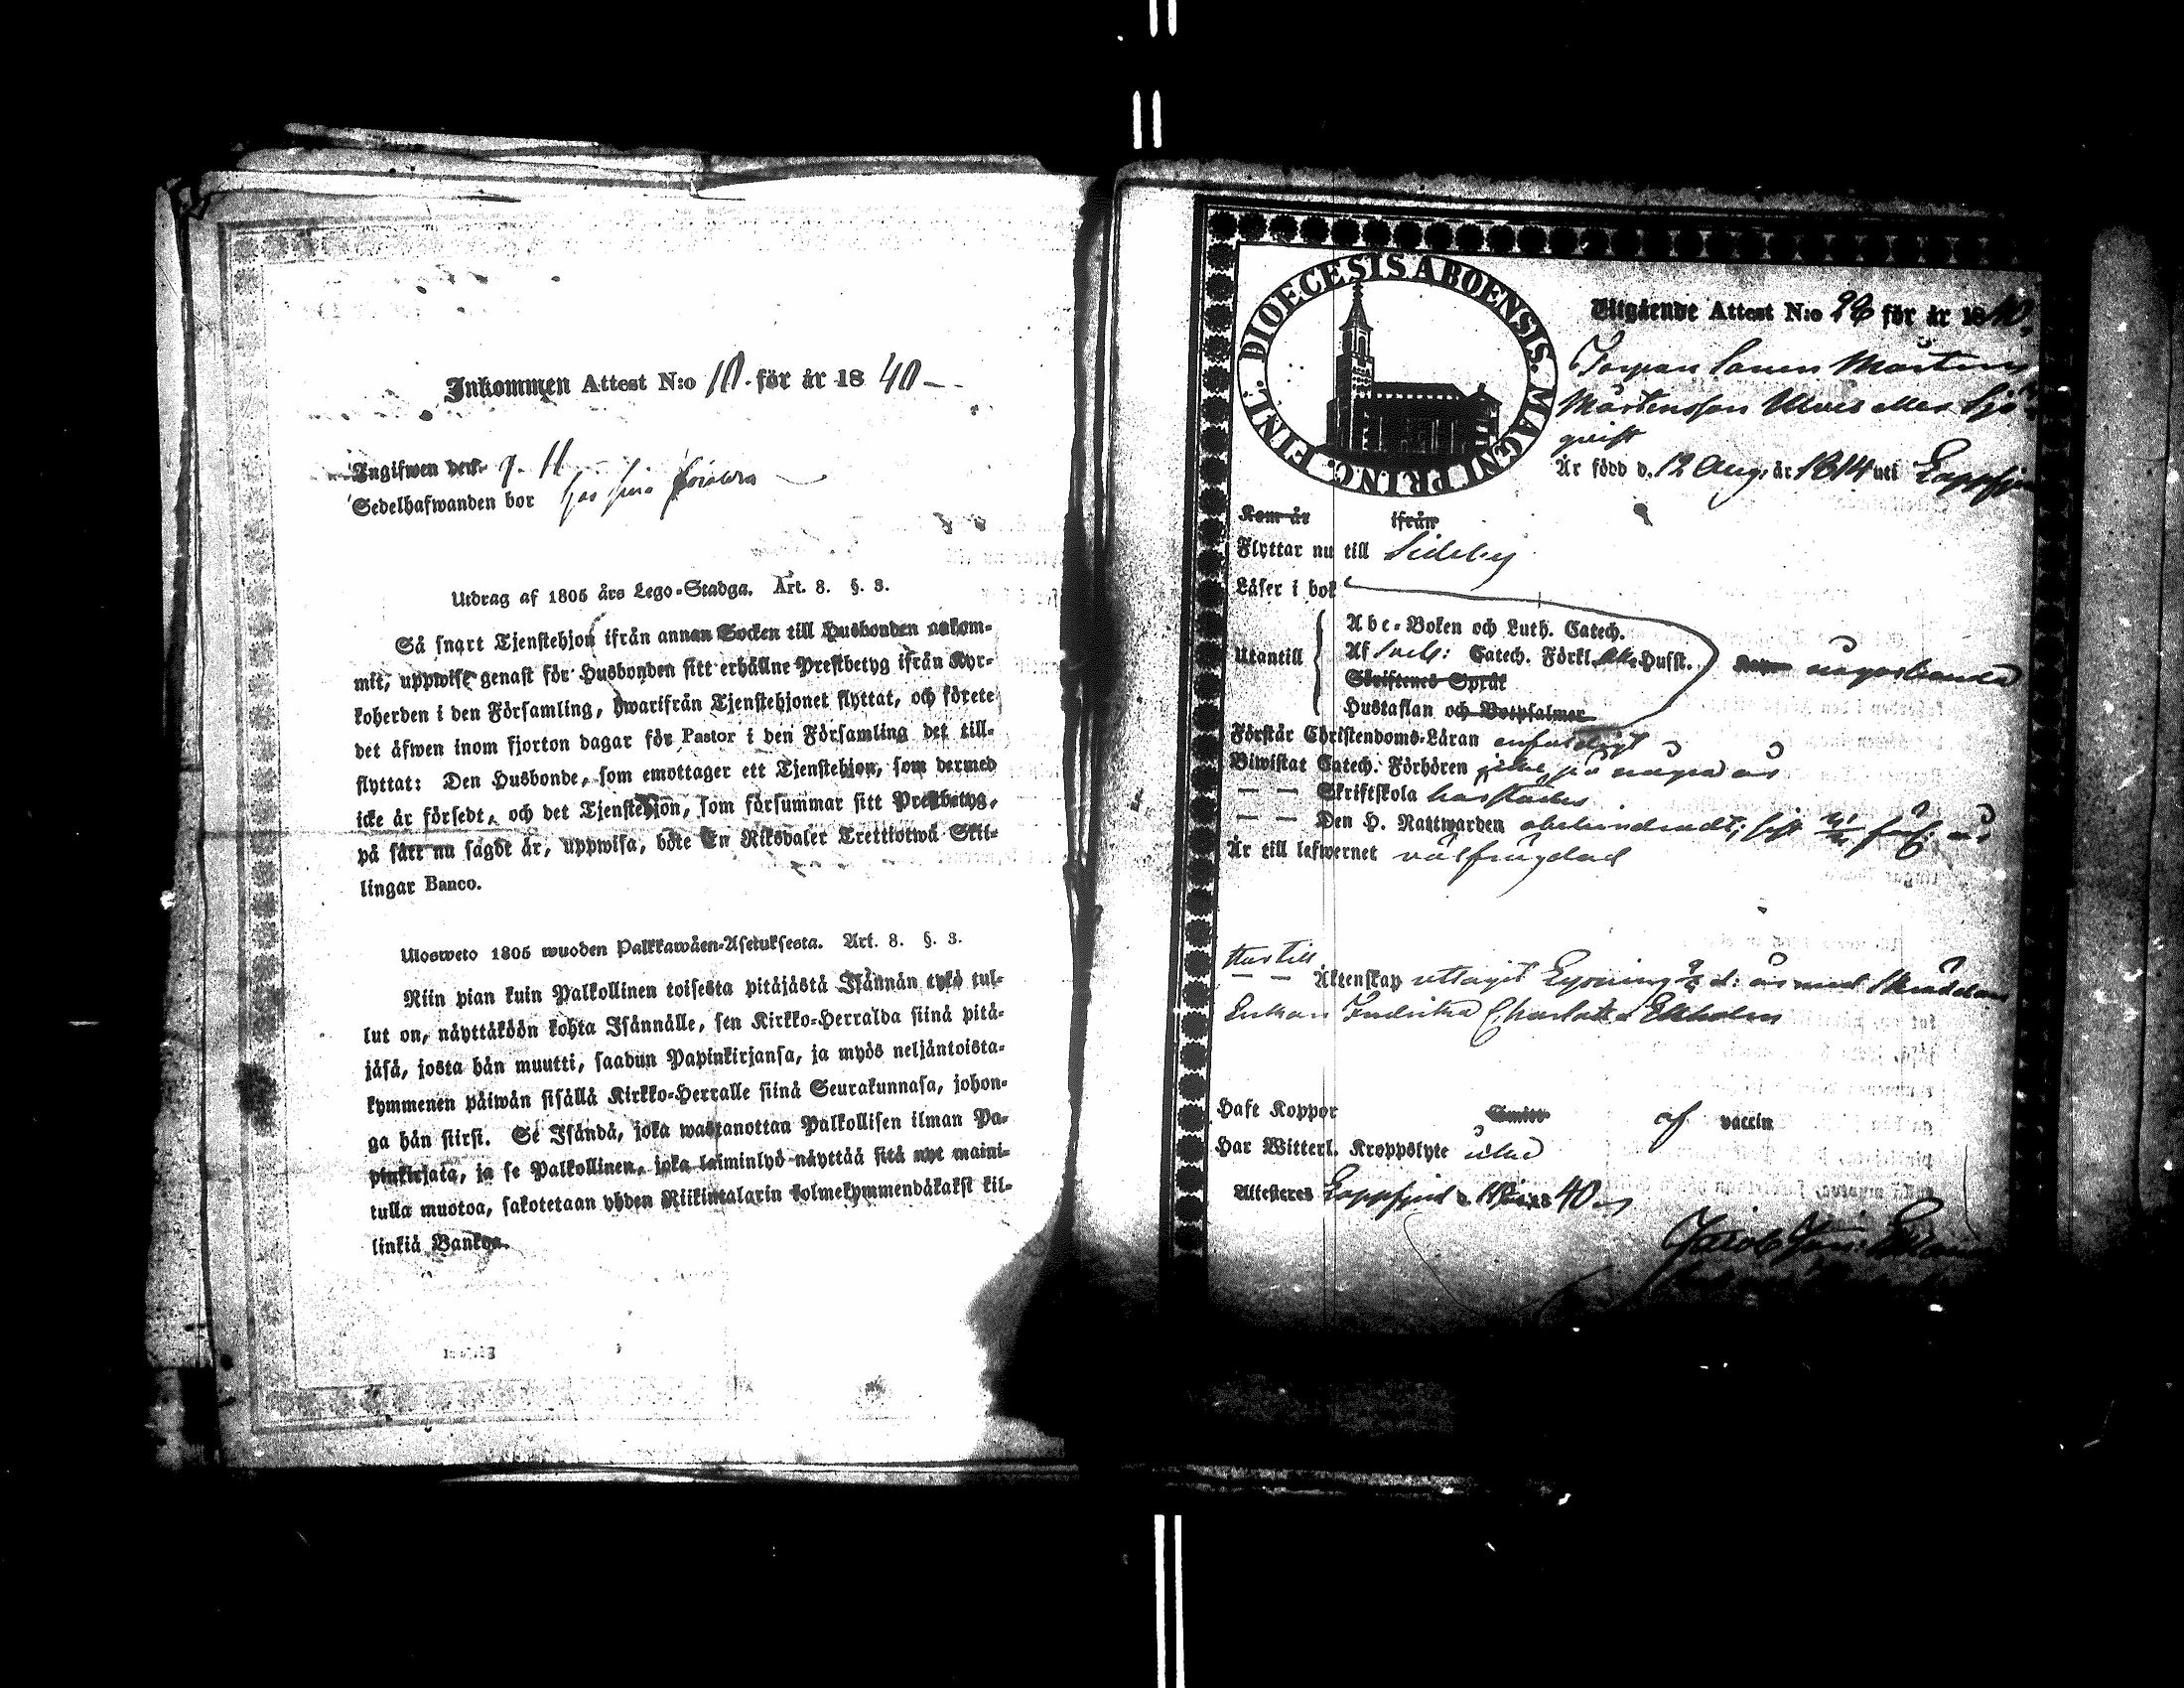 Inkommen Attest N:o 10. för år 1840
Ingifwen den
Sedelhafwanden bor hos sina föräldrar
Utdrag af 1805 års Lego-Stadga. Art. 8. §. 3.
Så snart Tjenstehjon ifrån annan Socken till Husbonden ankom-
mit, uppwise genast för Husbonden sitt erhållne Prestbetyg ifrån Kyr-
koherden i den Församling, hwarifrån Tjenstehjonet flyttat, och förete
det äfwen inom fjorton dagar för Pastor i den Församling det till-
flyttat: Den Husbonde, som emottager ett Tjenstehjon, som dermed
icke är försedt, och det Tjenstehjon, som försummar sitt Prestbetyg,
på sätt nu sagdt är, uppwisa, böte En Riksdaler Trettiotwå Skil-
lingar Banco.
Ulosweto 1805 wuoden Palkkawäen-Asetuksesta. Art. 8. §. 3.
Niin pian kuin Palkollinen toisesta pitäjästä Isännän tykö tul-
lut on, näyttäköön kohta Isännälle, sen Kirkko-Herralda siinä pitä-
jäsä, josta hän muutti, saadun Papinkirjansa, ja myös neljäntoista-
kymmenen päiwän sisällä Kirkko-Herralle siinä Seurakunnasa, johon-
ga hän siirsi. Se Isändä, joka wastanottaa Palkollisen ilman Pa-
pinkirjata, ja se Palkollinen, joka laiminlyö näyttää sitä nyt maini-
tulla muotoa, sakotetaan yhden Riikintalarin kolmekymmendäkaksi kil-
linkiä Bankoa.
DIOECESIS ABOENSIS. MAGNI PRINC. FINL.
Utgående Attest N:o för år 1840.
Torpare Sonen Mårten
Mårtensson Ulves eller Sjö-
qvist
Är född d. 12 Aug. år 1814 uti Lappfjerd
Kom år ifrån
Flyttar nu till Sideby
Läser i bok
Utantill
Abc-Boken och Luth. Catech.
Af Sveb: Catech. Förkl. Husst.
Skriftenes Språk
Hustaflan och Botpsalmer
någorlunda
Förstår Christendoms-Läran enfaldigt
Biwistat Catech. Förhören icke på några år
— — Skriftskola
— — Den H. Nattwarden obehindradt; sist
Är till lefwernet välfrägdad
Har till
— — Äktenskap uttagit Lysning d: år med Skräddare
Enkan Fredrika Charlotta Ekholm
Haft Koppor af vaccin
Har Witterl. Kroppslyte
Attesteras Lappfjerd d. 1840
Jacob